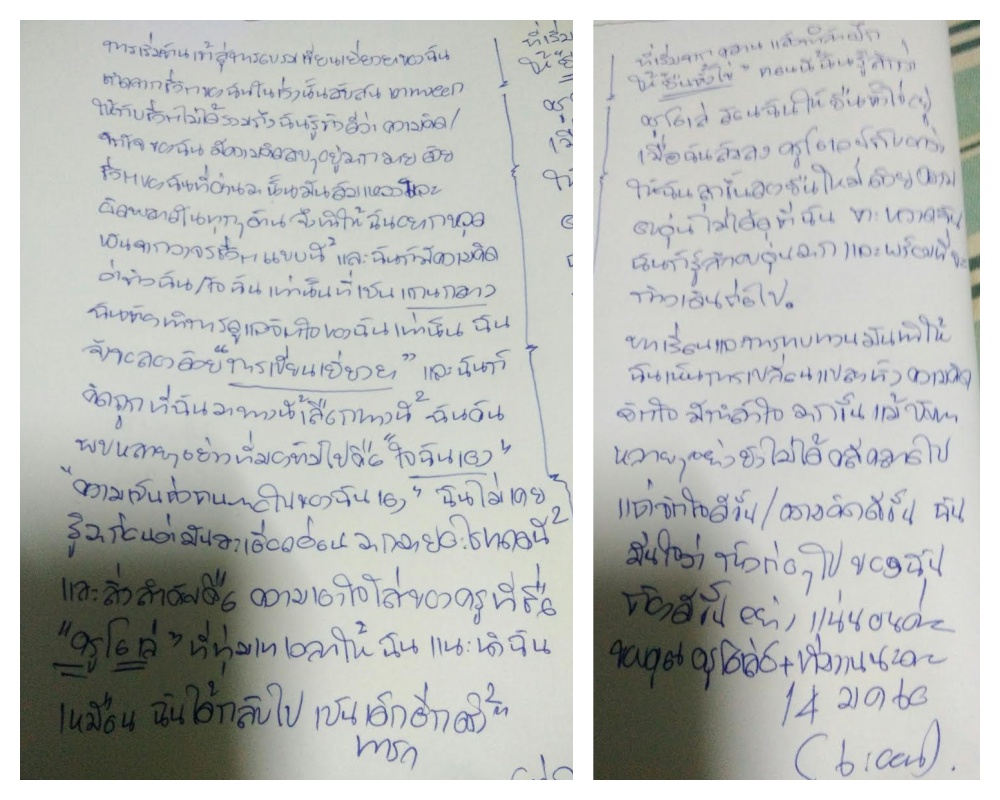 การเริ่มต้นเข้าสู่การอบรมเขียนเยียวยาของฉัน
ชีวิตของฉันในช่วงนั้นสับสน
ให้กับชีวิตไม่ได้ ฉันรู้ตัวดีว่า ความคิด/
จิตใจของฉัน มีความคิดลบๆอยู่มากมาย ด้วย
ชีวิตของฉันที่ผ่านมานั้นมันล้มเหลวและ
ผิดพลาดในทุกๆด้าน จึงทำให้ฉันอยากหลุด
พ้นจากวงจรชีวิตแบบนี้ และฉันก็มีความคิด
ว่าตัวฉัน/ใจฉัน เท่านั้นที่เป็นแกนกลาง
ฉันต้องทำการดูแลจิตใจของฉันเท่านั้น ฉัน
จึงจะลองด้วย "การเขียนเยียวยา" และฉันก็
คิดถูกที่ฉันมาทางนี้ เลือกทางนี้ ฉันค้น
พบหลายๆอย่างที่มองข้ามไปคือ "ใจฉันเอง"
"ความเป็นตัวตนภายในของฉันเอง" ฉันไม่เคย
รู้มาก่อนว่ามันอาจมากมายอะไรขนาดนี้
และสิ่งสำคัญคือ ความเอาใจใส่ของครูที่ชื่อ
"ครูโอเล่" ที่ทุ่มเทเวลาให้ฉัน แนะนำฉัน
เหมือน ฉันได้กลับไป เป็นเด็กอีกครั้ง
ทารก
ที่เริ่มจาก คลาน แล้วก็
ให้ "ยืนตั้งไข่" ตอนนี้ฉันรู้สึกว่า
ครูโอเล่ สอนฉันให้ยืนตั้งไข่อยู่
เมื่อฉันล้มลง ครูโอเล่
ให้ฉันลุกขึ้นลองยืนใหม่ด้วยความ
อบอุ่น ไม่ได้ดุที่ฉัน
ฉันก็รู้สึกอบอุ่นมาก และพร้อมที่จะ
ก้าวเดินต่อไป.
บทเรียนและการทบทวนมันทำให้
ฉันเห็นการเปลี่ยนแปลงทั้ง ความคิด
จิตใจ มีกำลังใจมากขึ้น แม้
หลายๆอย่างยังไม่ได้คลี่คลายไป
แต่จิตใจดีขึ้น/ความคิดดีขึ้น ฉัน
มั่นใจว่า ก้าวต่อๆไป ของฉัน
ต้องดีขึ้น อย่าง แน่นอนค่ะ
ขอบคุณ ครูโอเล่+ทีมงานนะคะ
14 มค 6